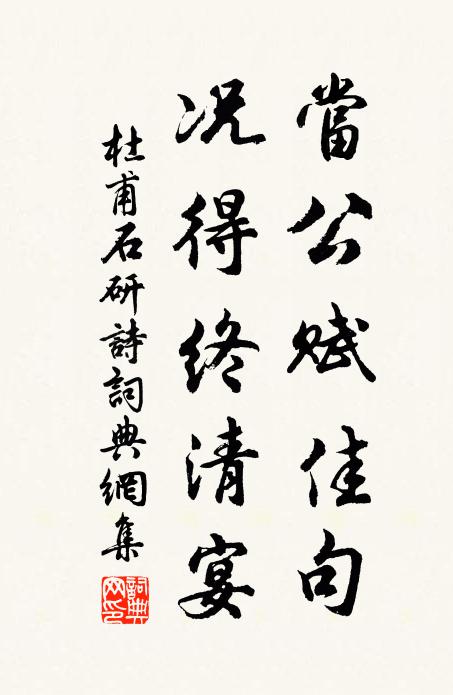 當公賦佳句
况得終清宴
杜甫石研詩詞典網集
詞典網印